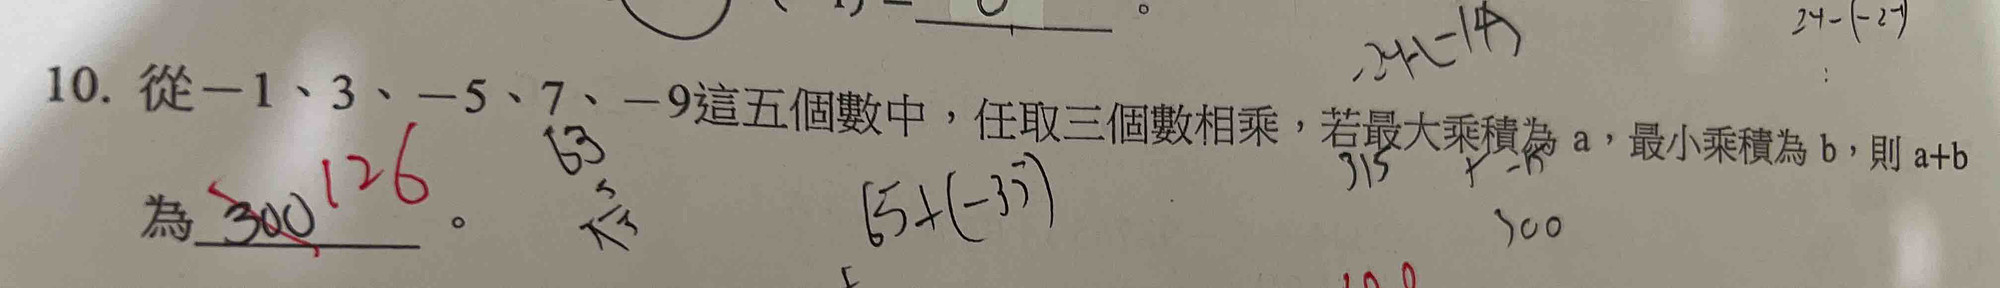 10. 從－1、3、－5、7、－9這五個數中，任取三個數相乘，若最大乘積為 a，最小乘積為 b，則 a+b
為 300 126 。
24-(-24)
63
65+(-35)
315 + -15
300